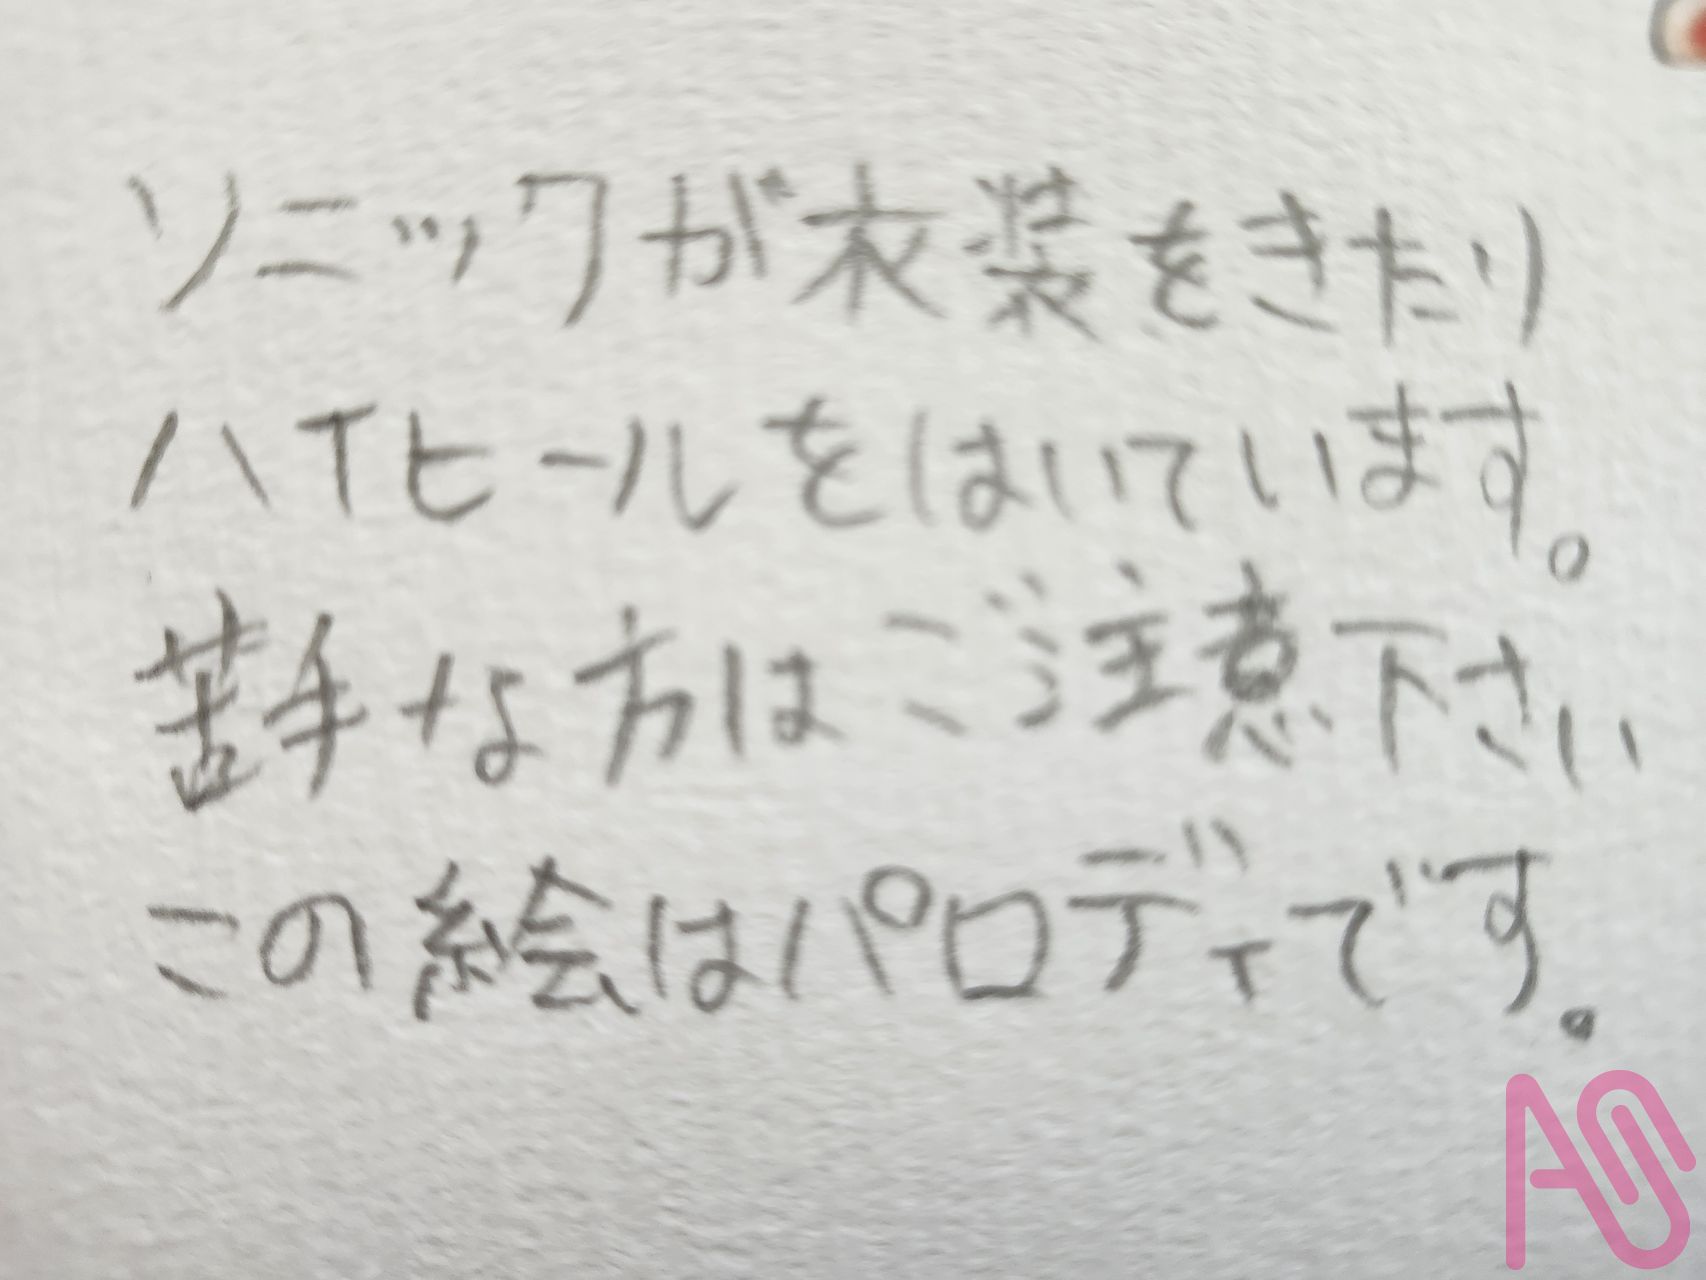 ソニックが衣装をきたり
ハイヒールをはいています。
苦手な方はご注意下さい
この絵はパロディです.